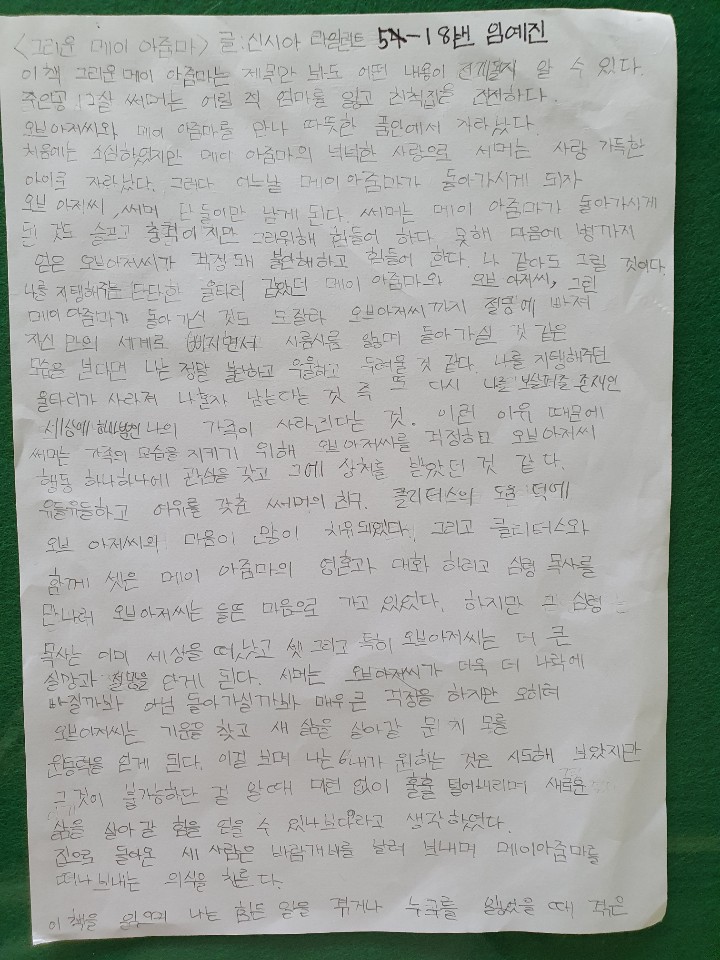 <그리운 메이 아줌마> 글:신시아 라일런트 54-18번 임예진
이 책 그리운 메이 아줌마는 제목만 봐도 어떤 내용이 전개될지 알 수 있다.
주인공 12살 써머는 어릴 적 엄마를 잃고 친척집을 전전하다.
오브아저씨와 메이 아줌마를 만나 따뜻한 품안에서 자라났다.
처음에는 소심하였지만 메이 아줌마의 넉넉한 사랑으로 써머는 사랑 가득한
아이로 자라났다. 그러다 어느날 메이 아줌마가 돌아가시게 되자
오브 아저씨, 써머 단 둘이만 남게 된다. 써머는 메이 아줌마가 돌아가시게
된 것도 슬프고 충격이지만 그리워해 힘들어 하다 못해 마음에 병까지
얻은 오브아저씨가 걱정돼 불안해하고 힘들어 한다. 나 같아도 그럴 것이다.
나를 지탱해주는 단단한 울타리 같았던 메이 아줌마와 오브 아저씨, 그런
메이 아줌마가 돌아가신 것도 모잘라 오브아저씨까지 절망에 빠져
자신 만의 세계로 빠지면서 시름시름 앓며 돌아가실 것 같은
모습을 본다면 나는 정말 불안하고 우울하고 두려울 것 같다. 나를 지탱해주던
울타리가 사라져 나혼자 남는다는 것 즉 또 다시 나를 보살펴줄 존재인
세상에 하나뿐인 나의 가족이 사라진다는 것. 이런 이유 때문에
써머는 가족의 모습을 지키기 위해 오브아저씨를 걱정하고 오브아저씨
행동 하나하나에 관심을 갖고 그에 상처를 받았던 것 같다.
유들유들하고 여유를 갖춘 써머의 친구. 클리터스의 도움 덕에
오브 아저씨의 마음이 많이 치유되었다. 그리고 클리터스와
함께 셋은 메이 아줌마의 영혼과 대화 하려고 심령 목사를
만나러 오브아저씨는 들뜬 마음으로 가고 있었다. 하지만 그 심령
목사는 이미 세상을 떠났고 셋 그리고 특히 오브아저씨는 더 큰
실망과 절망을 안게 된다. 써머는 오브아저씨가 더욱 더 나락에
빠질까봐 아님 돌아가실까봐 매우 큰 걱정을 하지만 오히려
오브아저씨는 기운을 찾고 새 삶을 살아갈 뭔지 모를
원동력을 얻게 된다. 이걸 보며 나는 '내가 원하는 것은 시도해 보았지만
그것이 불가능하단 걸 알 때 미련 없이 훌훌 털어버리며 새로운
삶을 살아 갈 힘을 얻을 수 있나보다'라고 생각하였다.
집으로 돌아온 세 사람은 바람개비를 날려 보내며 메이아줌마를
떠나보내는 의식을 치른다.
이 책을 읽으며 나는 힘든 일을 겪거나 누구를 잃었을 때 겪은